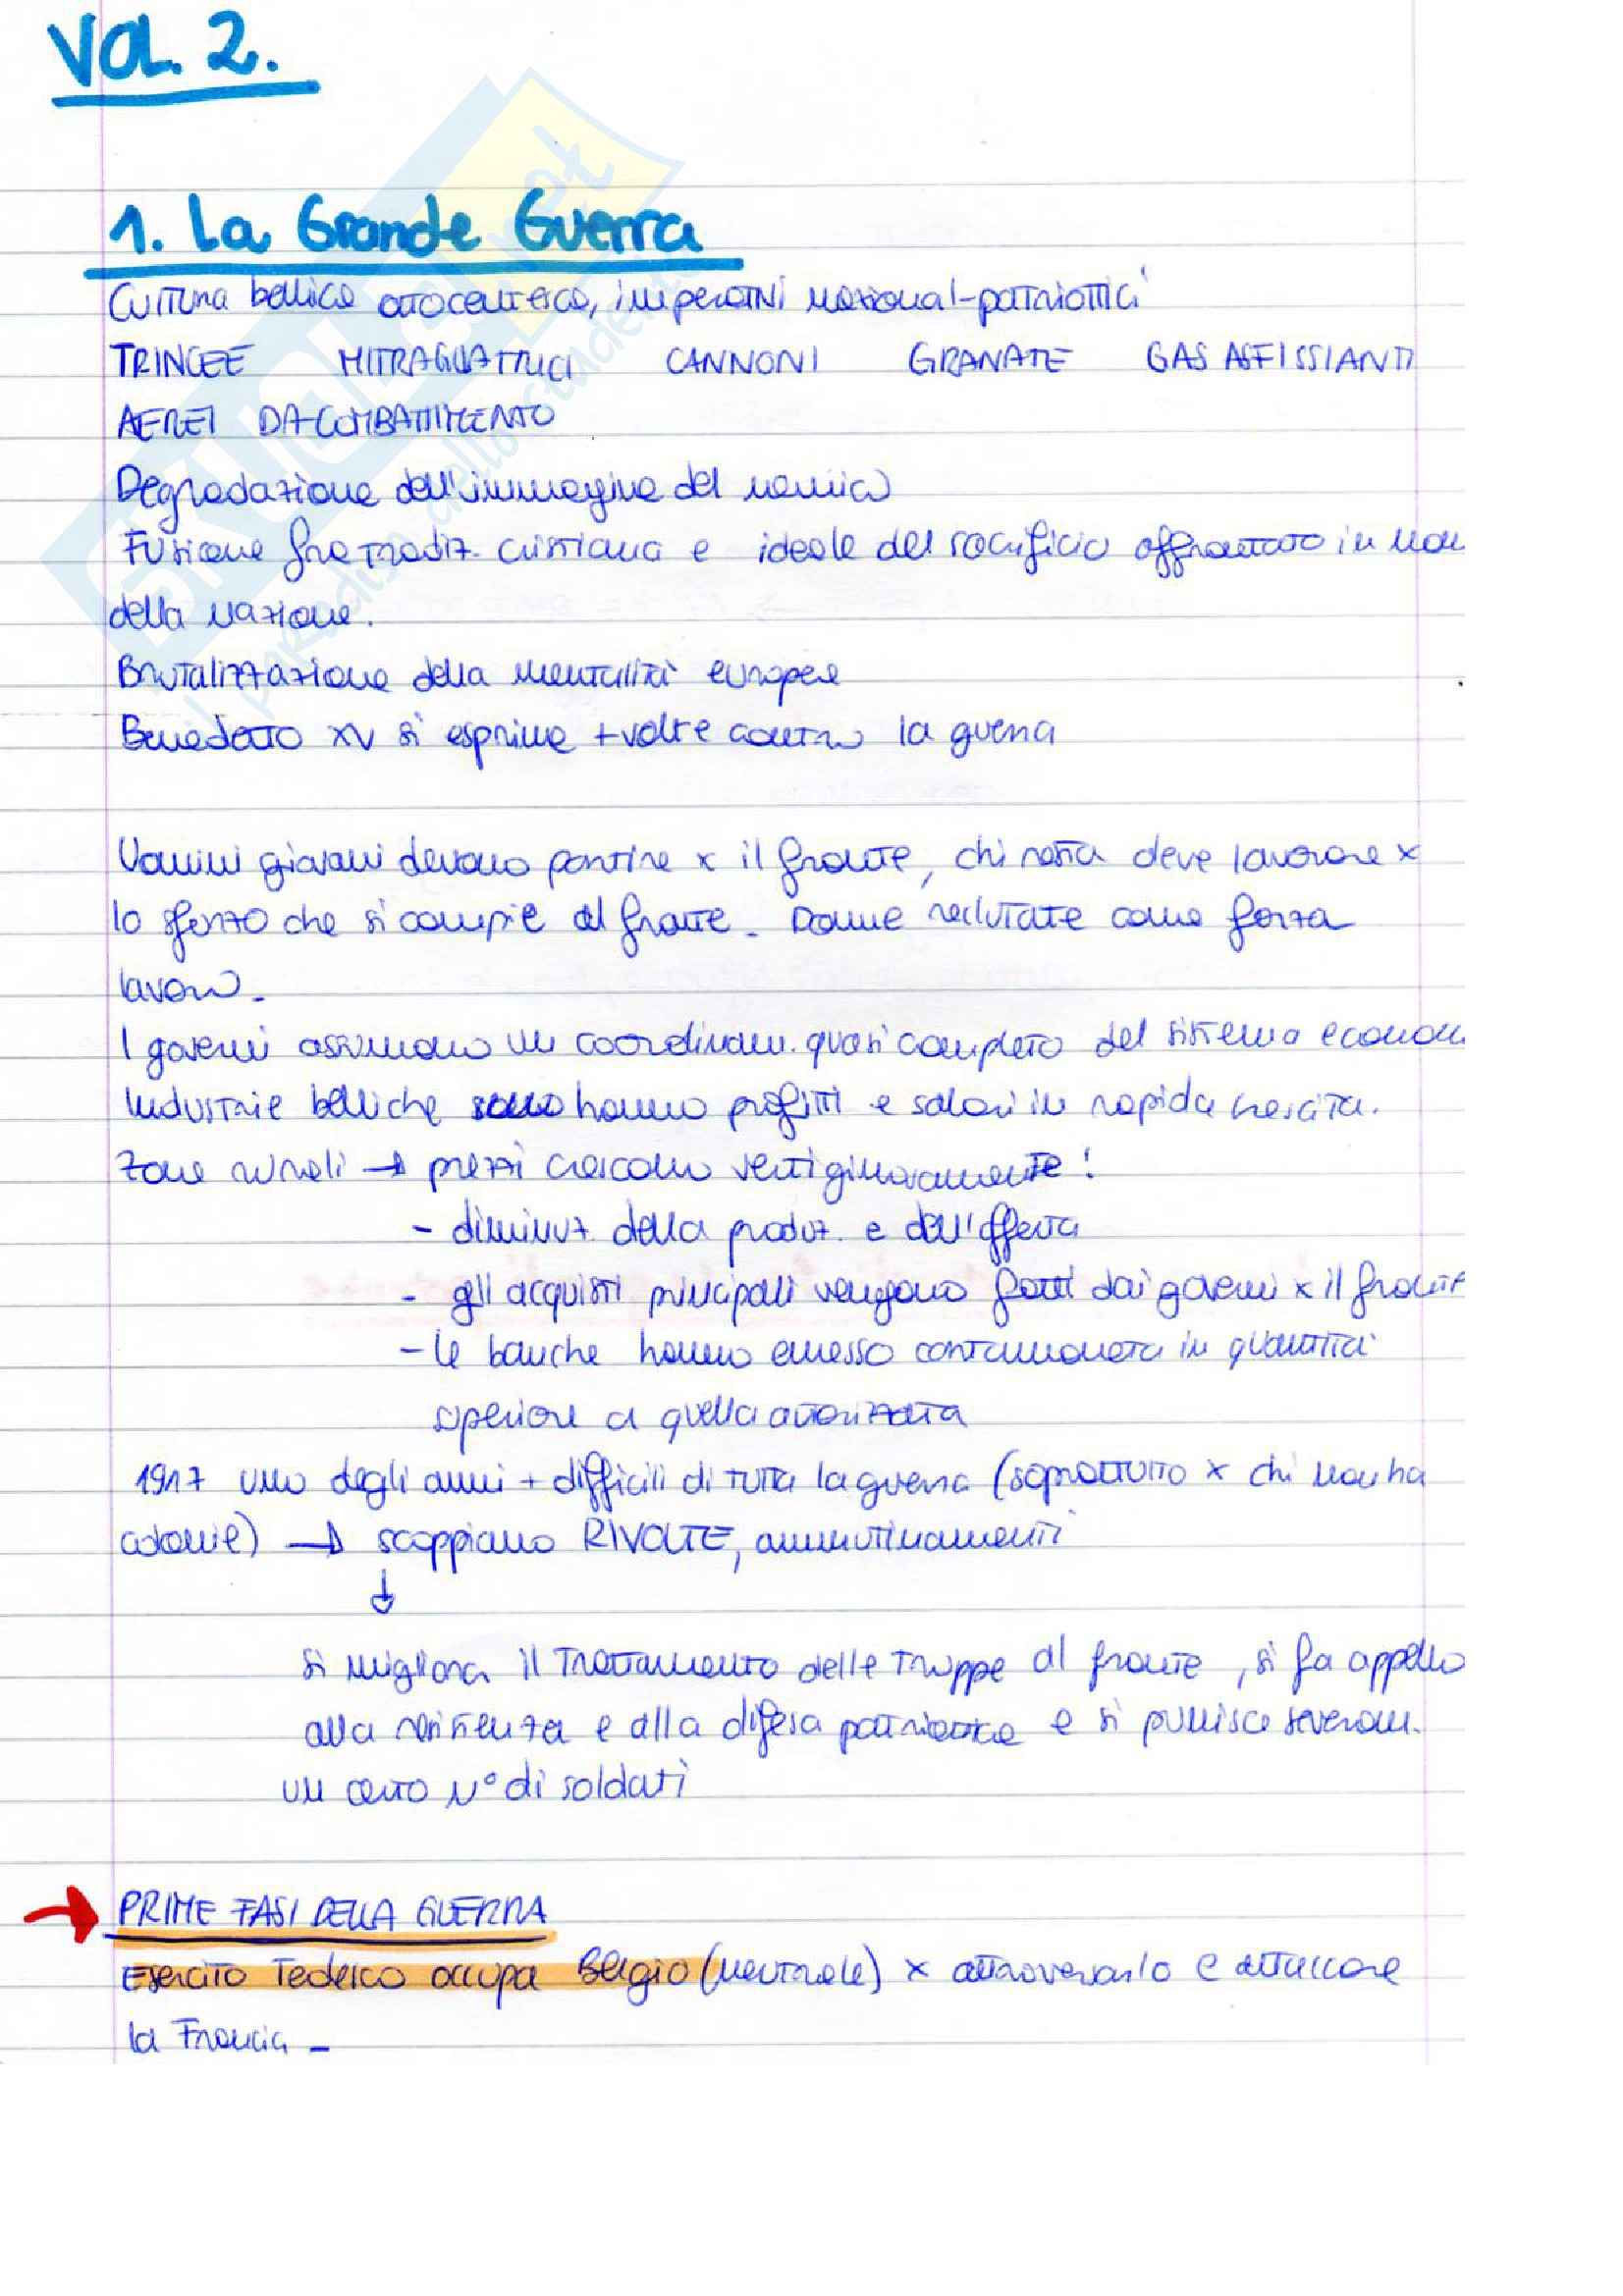 Vol. 2.
1. La Grande Guerra
Cultura bellica ottocentesca, imperativi nazional-patriottici
TRINCEE MITRAGLIATRICI CANNONI GRANATE GAS ASFISSIANTI
AEREI DA COMBATTIMENTO
Degradazione dell'immagine del nemico
Fusione fra tradiz. cristiana e ideale del sacrificio affrontato in nom
della nazione.
Brutalizzazione della mentalità europea
Benedetto XV si esprime + volte contro la guerra
Uomini giovani devono partire x il fronte, chi resta deve lavorare x
lo sforzo che si compie al fronte. Donne reclutate come forza
lavoro.
I governi assumono un coordinam. quasi completo del sistema econom
Industrie belliche hanno profitti e salari in rapida crescita.
Zone rurali → prezzi crescono vertiginosamente!
- diminuz. della produz. e dell'offerta
- gli acquisti principali vengono fatti dai governi x il fronte
- le banche hanno emesso cartamoneta in quantità
superiore a quella autorizzata
1917 uno degli anni + difficili di tutta la guerra (soprattutto x chi non ha
colonie) → scoppiano RIVOLTE, ammutinamenti
↓
si migliora il trattamento delle truppe al fronte, si fa appello
alla resistenza e alla difesa patriottica e si punisce severam.
un certo N° di soldati
→ PRIME FASI DELLA GUERRA
Esercito Tedesco occupa Belgio (neutrale) x attraversarlo e attaccare
la Francia -